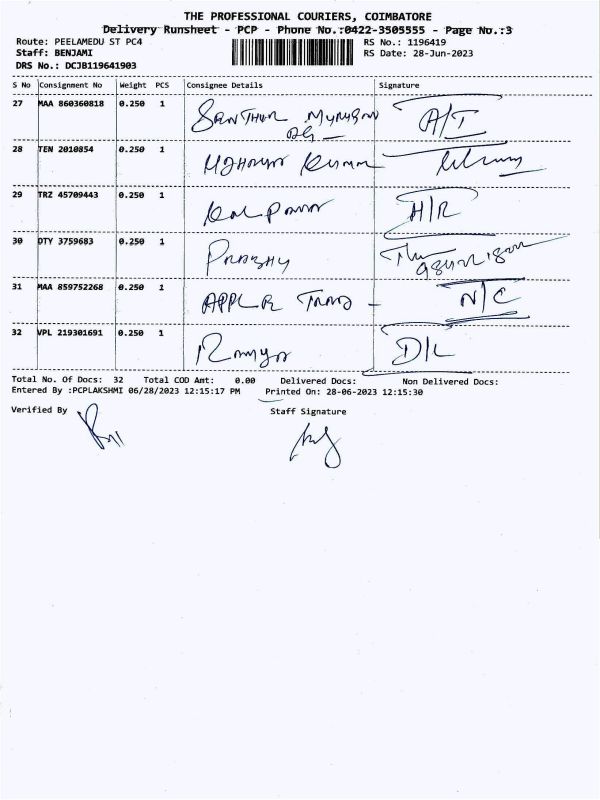 THE PROFESSIONAL COURIERS, COIMBATORE
Delivery Runsheet - PCP - Phone No.:0422-3505555 - Page No.:3
Route: PEELAMEDU ST PC4 RS No.: 1196419
Staff: BENJAMI RS Date: 28-Jun-2023
DRS No.: DCJB119641903
S No Consignment No Weight PCS Consignee Details Signature
27 MAA 860360818 0.250 1 A/I
28 TEN 2010854 0.250 1 Kumar
29 TRZ 45709443 0.250 1 H/R
30 DTY 3759683 0.250 1 Prabhu
31 MAA 859752268 0.250 1 N/C
32 VPL 219301691 0.250 1 Ramya D/L
Total No. Of Docs: 32 Total COD Amt: 0.00 Delivered Docs: Non Delivered Docs:
Entered By :PCPLAKSHMI 06/28/2023 12:15:17 PM Printed On: 28-06-2023 12:15:30
Verified By Staff Signature